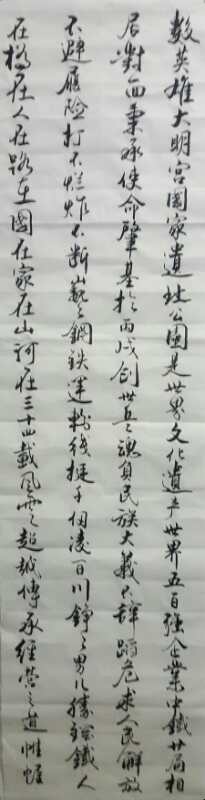 数英雄大明宫国家遗址公园是世界文化遗产世界五百强企业中铁廿局相
居对面秉承使命肇基於丙戌创世兵之魂负民族大义不辞蹈危求人民解放
不避履险打不烂炸不断巍巍钢铁运输线挺千仞凌百川铮铮男儿胜踪铁人
在桥在人在路在国在家在山河在三十四载风云超越传承经营之道帷幄